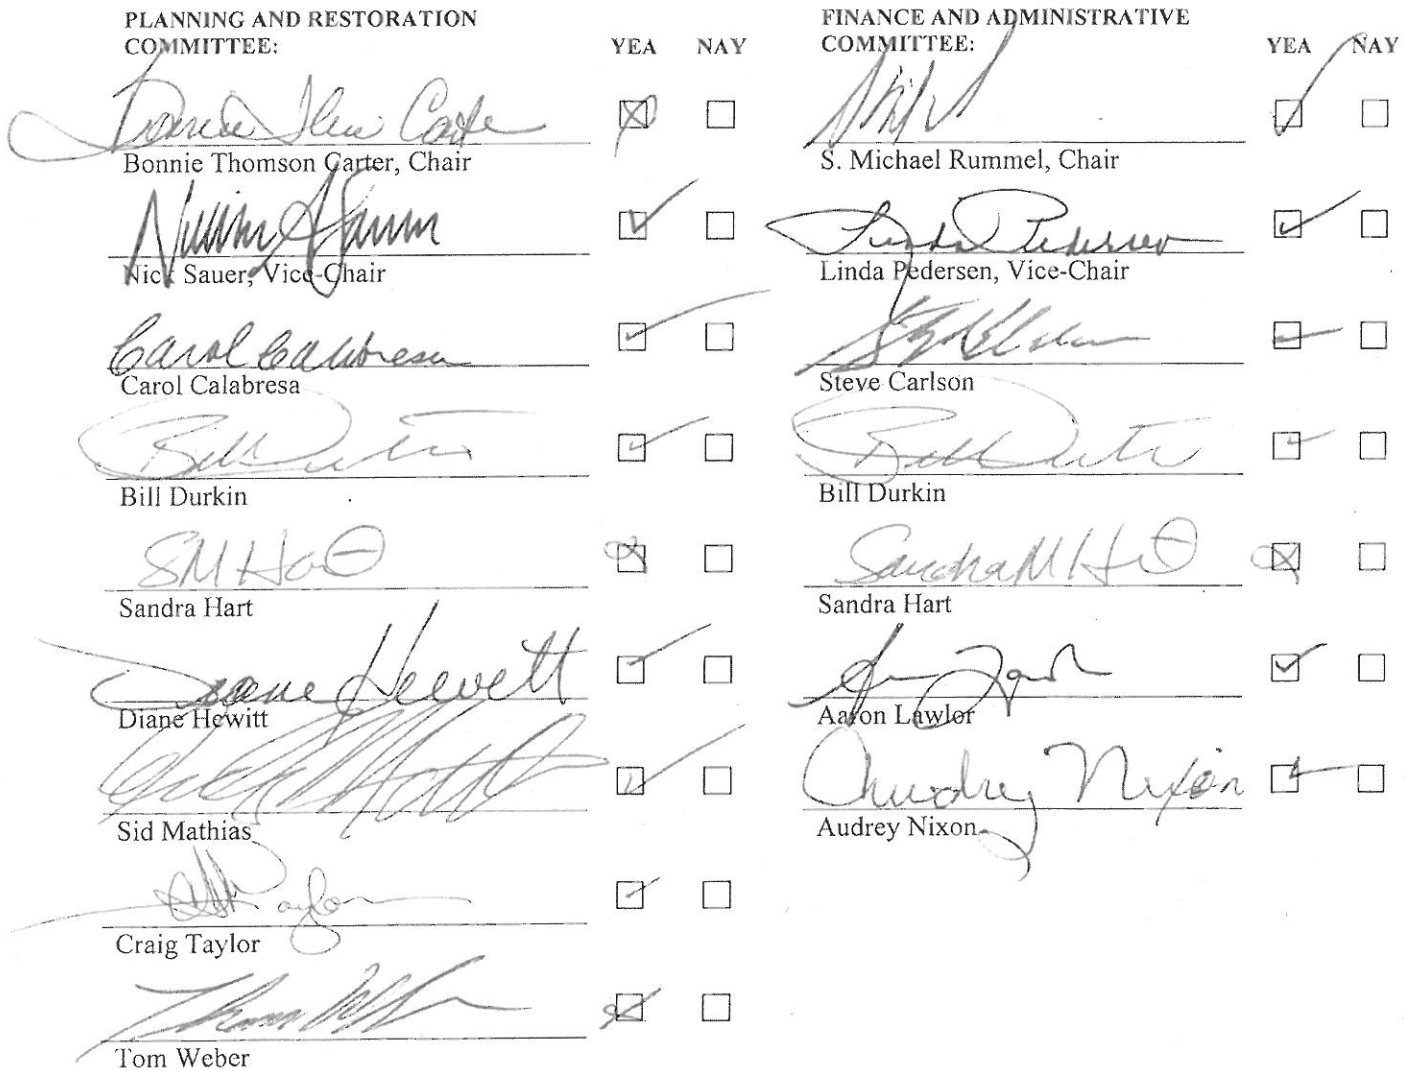 PLANNING AND RESTORATION
COMMITTEE:
YEA NAY
Bonnie Thomson Carter
Bonnie Thomson Carter, Chair
Nick Sauer, Vice-Chair
Carol Calabresa
Carol Calabresa
Bill Durkin
Bill Durkin
SM Hart
Sandra Hart
Diane Hewitt
Diane Hewitt
Sid Mathias
Craig Taylor
Tom Weber
FINANCE AND ADMINISTRATIVE
COMMITTEE:
YEA NAY
S. Michael Rummel, Chair
Linda Pedersen
Linda Pedersen, Vice-Chair
Steve Carlson
Bill Durkin
Bill Durkin
Sandra M Hart
Sandra Hart
Aaron Lawlor
Audrey Nixon
Audrey Nixon